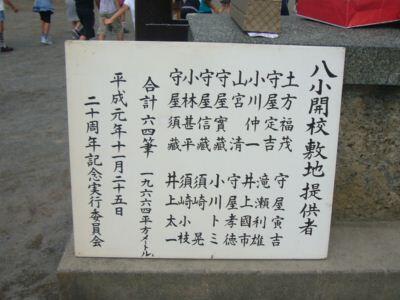 八小開校敷地提供者
土方福茂 守屋寅吉
守屋定吉 滝瀬利雄
小川仲一 井上國市
山宮清 守屋孝徳
守屋實藏 小川トミ
守屋信藏 須崎晃
小林甚平 須崎小枝
守屋須藏 井上太一
合計 六四筆 一九六六四平方メートル
平成元年十一月二十五日
二十周年記念実行委員会